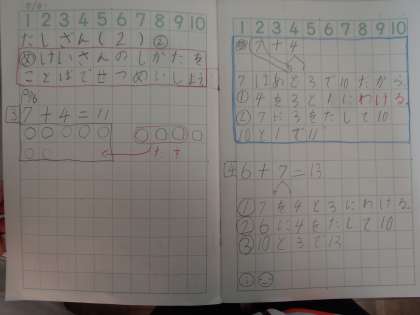 1 2 3 4 5 6 7 8 9 10
たしざん(2)②
けいさんのしかたを
ことばでせつめいしよう
P.
3 7+4=11
1 2 3 4 5 6 7 8 9 10
7+4
7はあと3で10だから
① 4を3と1にわける
② 7に3をたして10
10と1で11
4 6+7=13
① 7を4と3にわける
② 6に4をたして10
③ 10と3で13